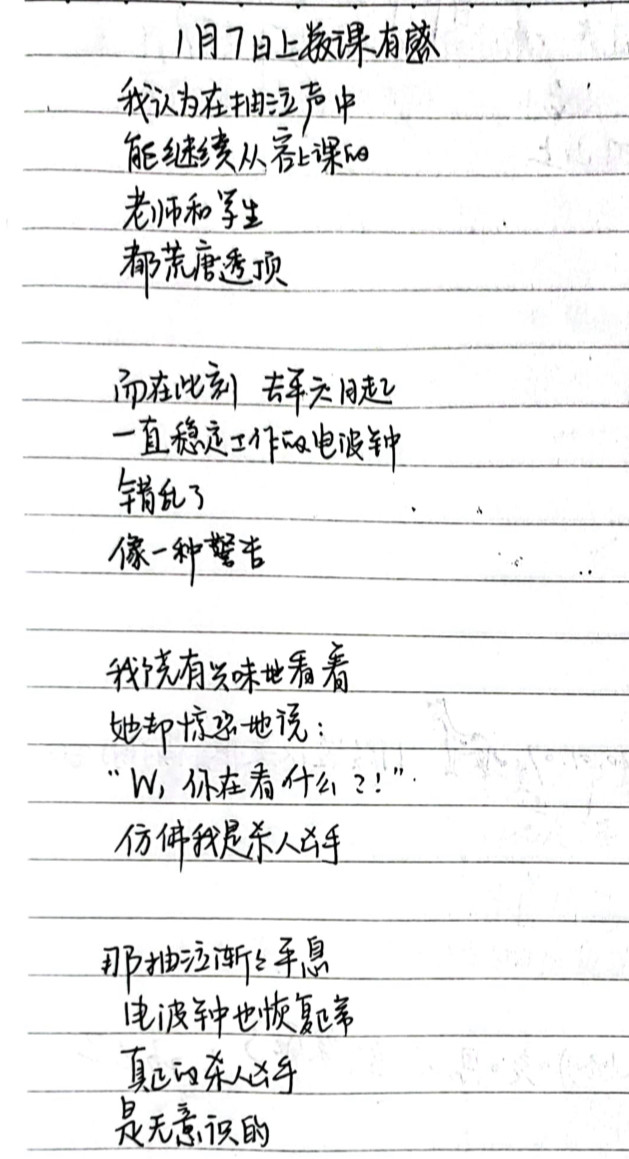 1月7日上数课有感
我认为在抽泣声中
能继续从容上课的
老师和学生
都荒唐透顶
而在此刻 去年六月起
一直稳定工作的电波钟
错乱了
像一种警告
我饶有兴味地看着
她却惊恐地说：
“W，你在看什么？！”
仿佛我是杀人凶手
那抽泣渐渐平息
电波钟也恢复正常
真正的杀人凶手
是无意识的